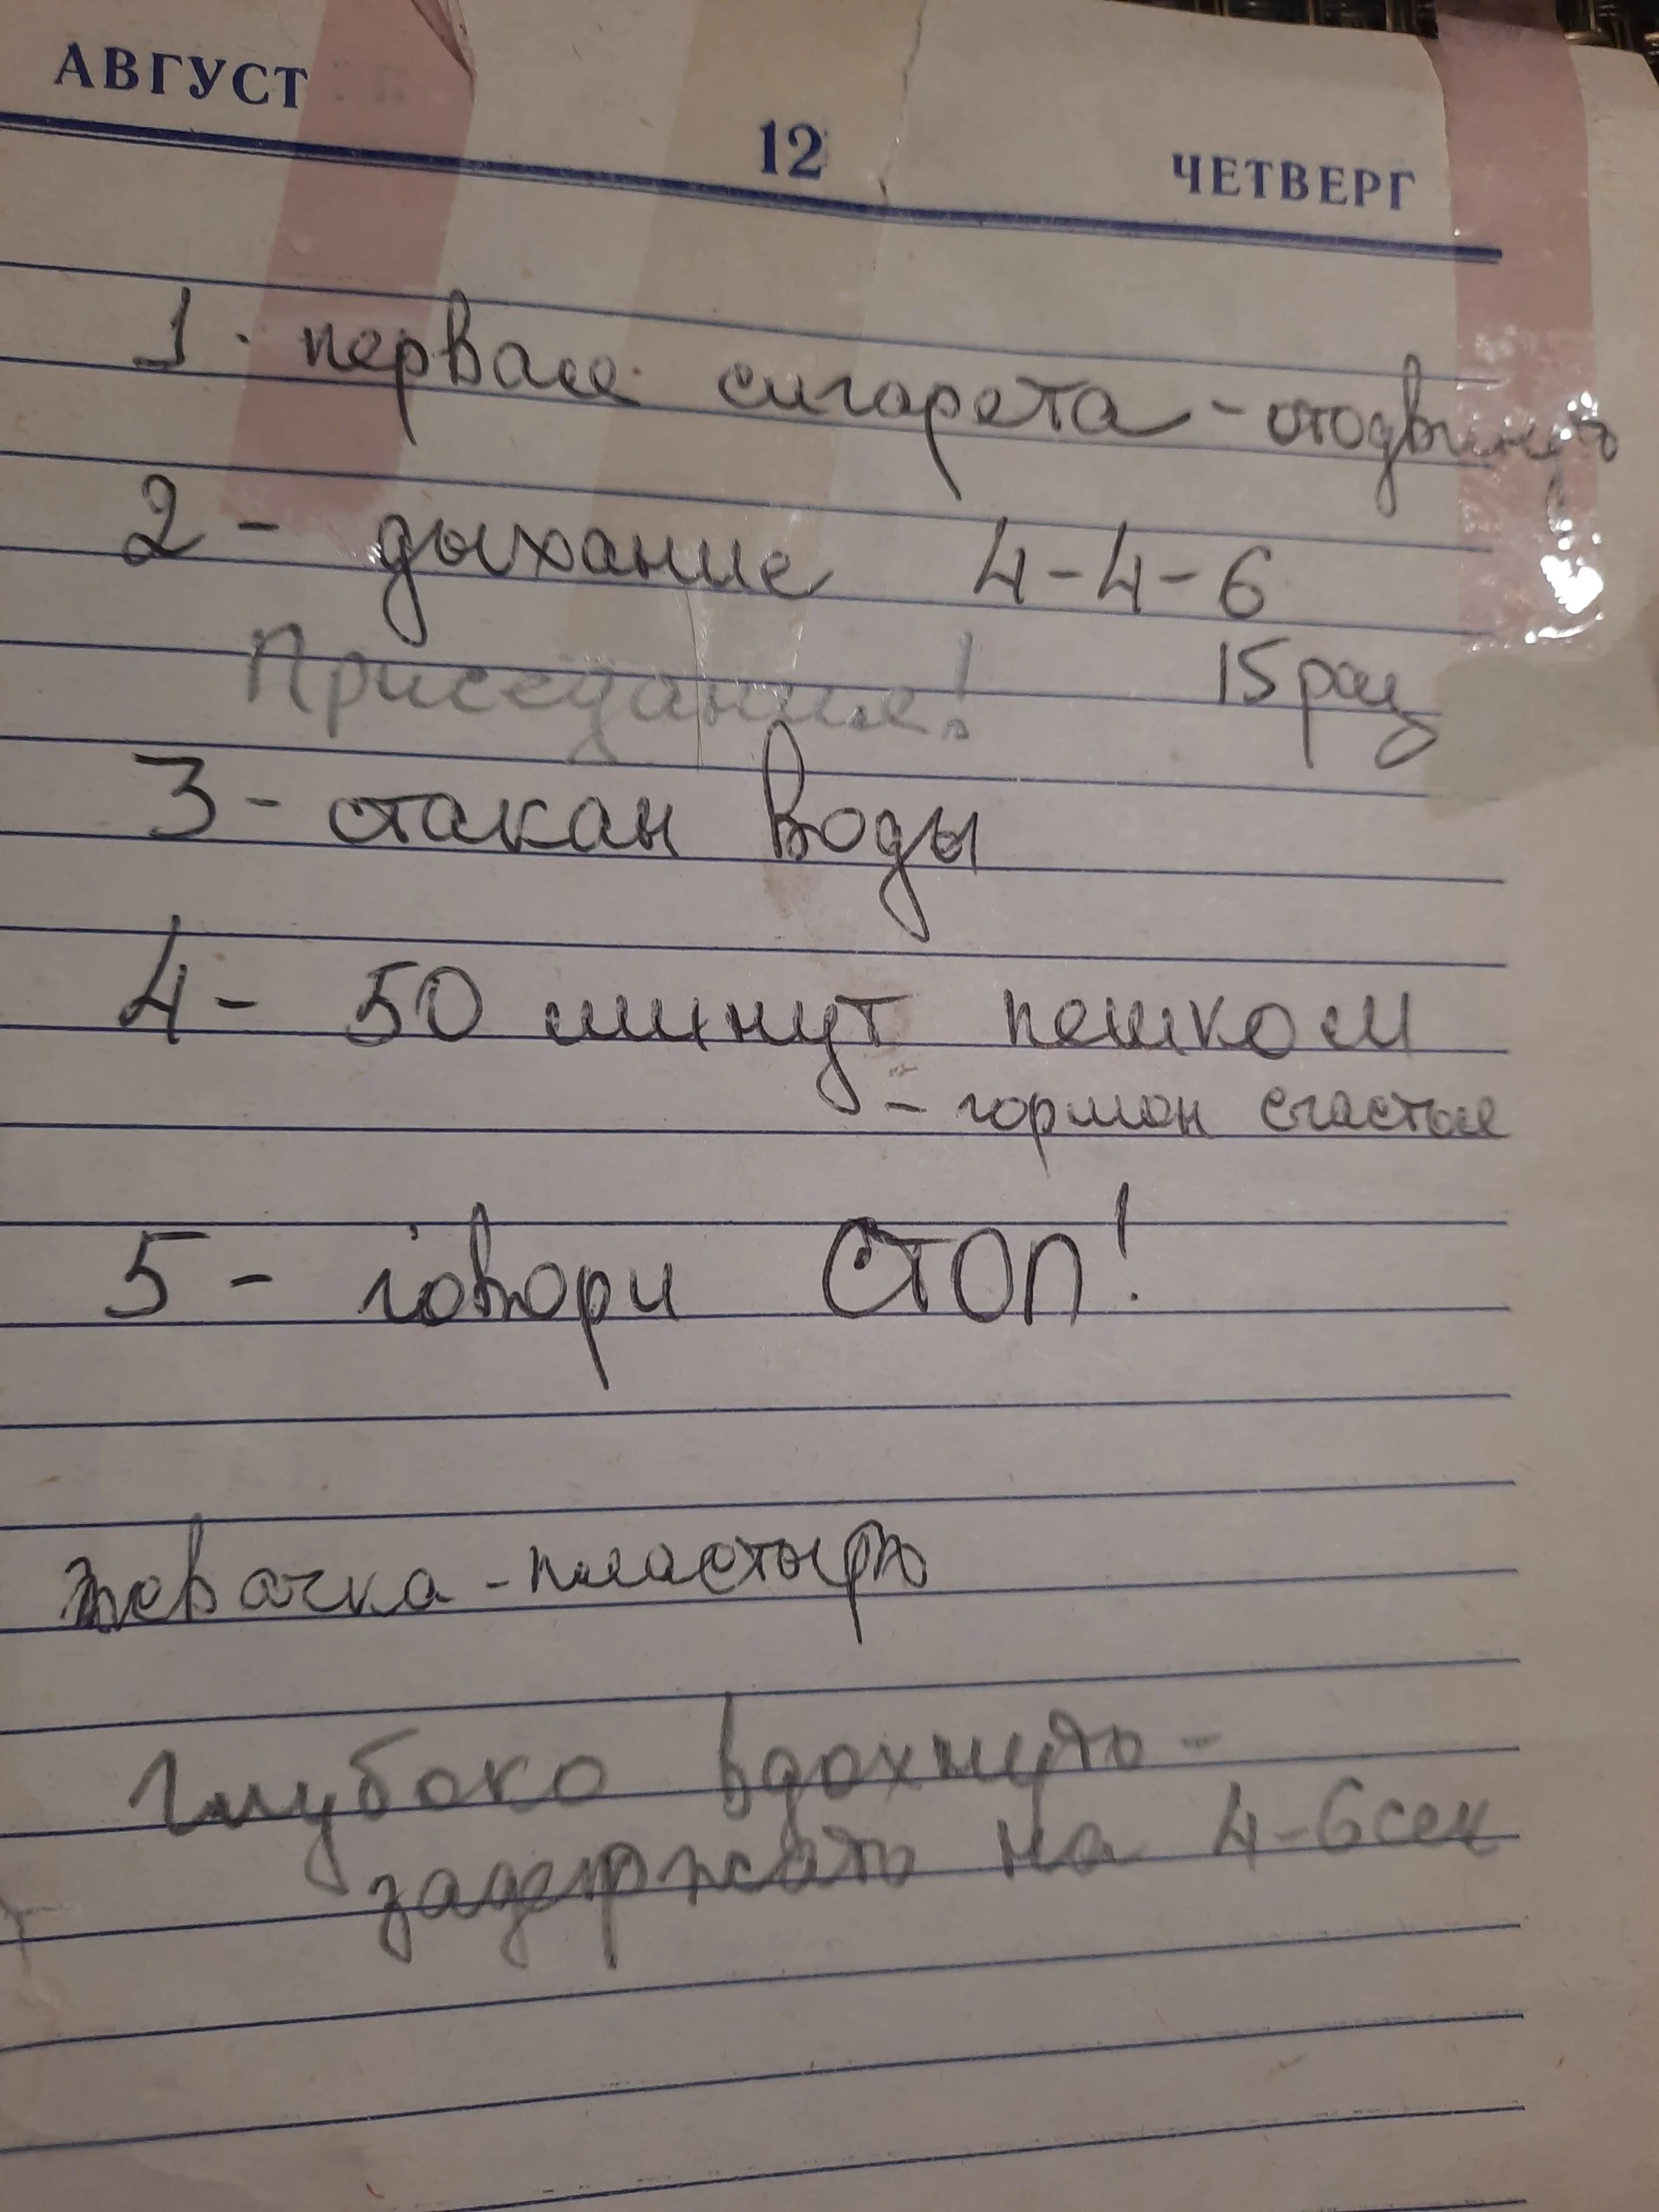 АВГУСТ 12 ЧЕТВЕРГ
1. первая сигарета - отодвинуть
2 - дыхание 4-4-6
Приседание! 15 раз
3 - стакан воды
4 - 50 минут пешком
- гормон счастья
5 - говори СТОП!
жевачка - пластырь
Глубоко вдохнуть -
задержать на 4-6 сек